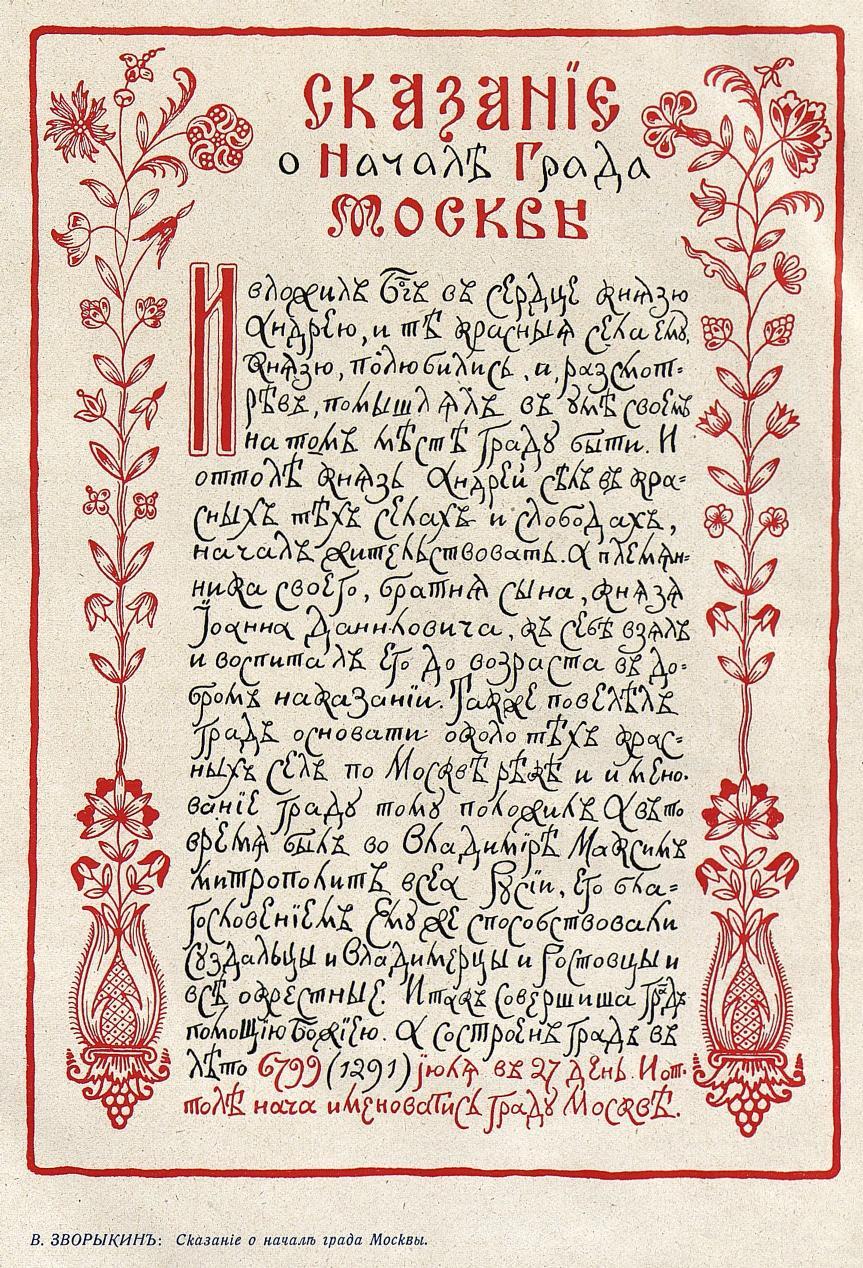 СКАЗАНЇЕ
о Началѣ Града
МОСКВѢ
И вложилъ Бг҃ъ въ сердце князю
Андрею, и тѣ красныя села ему,
Князю, полюбились, и, разсмот=
рѣвъ, помышлялъ въ умѣ своемъ
на томъ мѣстѣ граду быти. И
оттолѣ князь Андрей сѣлъ въ кра=
сныхъ тѣхъ селахъ и слободахъ,
началъ жительствовать. А племян=
ника своего, братня сына, князя
Іоанна Данииловича, къ себѣ взялъ
и воспиталъ его до возраста въ до=
бромъ наказанїи. Также повелѣлъ
градъ основати около тѣхъ крас=
ныхъ селъ по Москвѣ рѣкѣ и имено=
ванїе граду тому положилъ А въ то
время былъ во Владимїрѣ Максимъ
митрополитъ всеа Русїи, его бла=
гословенїемъ Ему же способствовали
Суздальцы и Владимерцы и Ростовцы и
всѣ окрестные. И такъ совершиша гра҃дъ
помощїю Божїею. А состроенъ градъ въ
лѣто 6799 (1291) їюля въ 27 день. И от=
толѣ нача именоватись граду Москвѣ.
В. ЗВОРЫКИНЪ: Сказаніе о началѣ града Москвы.